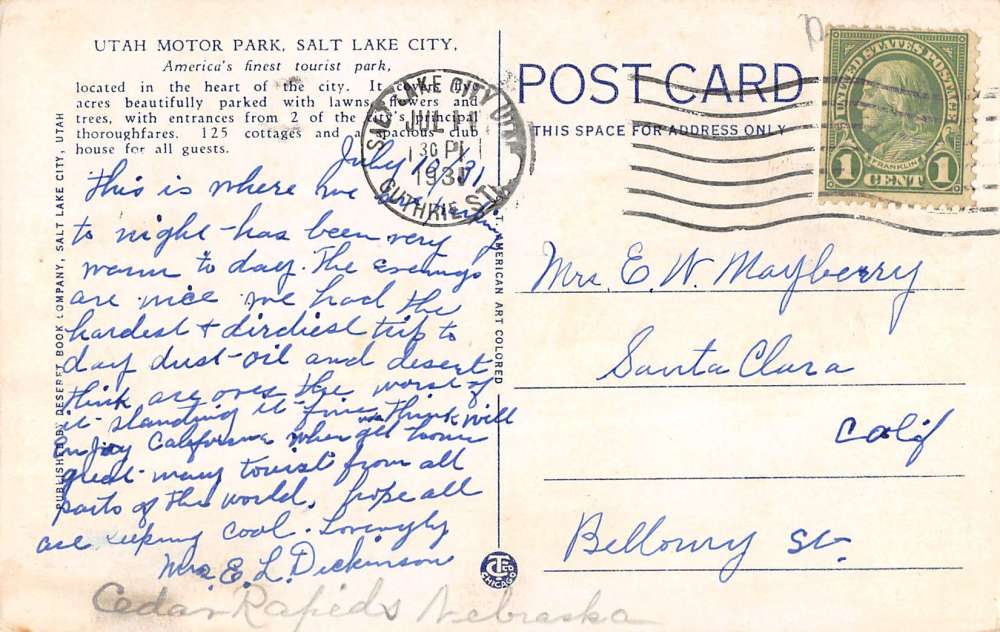 UTAH MOTOR PARK, SALT LAKE CITY,
America's finest tourist park,
located in the heart of the city. It covers
acres beautifully parked with lawns, flowers and
trees, with entrances from 2 of the city's principal
thoroughfares. 125 cottages and a spacious club
house for all guests.
July 10/31
This is where we are staying
to night - has been very
warm to day. The evenings
are nice we had the
hardest + dirdiest trip to
day dust - oil and desert
think are over the worst of
it - standing it fine - think will
enjoy California when get home
great many tourist from all
parts of the world, hope all
are keeping cool. Lovingly
Mrs. E. L. Dickinson
Cedar Rapids Nebraska
PUBLISHED BY DESERET BOOK COMPANY, SALT LAKE CITY, UTAH
AMERICAN ART COLORED
CT CHICAGO
POST CARD
THIS SPACE FOR ADDRESS ONLY
SALT LAKE CITY UTAH
JUL
30 PM
1931
GUTHRIE STA.
UNITED STATES POSTAGE
FRANKLIN
1 CENT 1
Mrs. E. W. Mayberry
Santa Clara
Calif
Bellomy St.